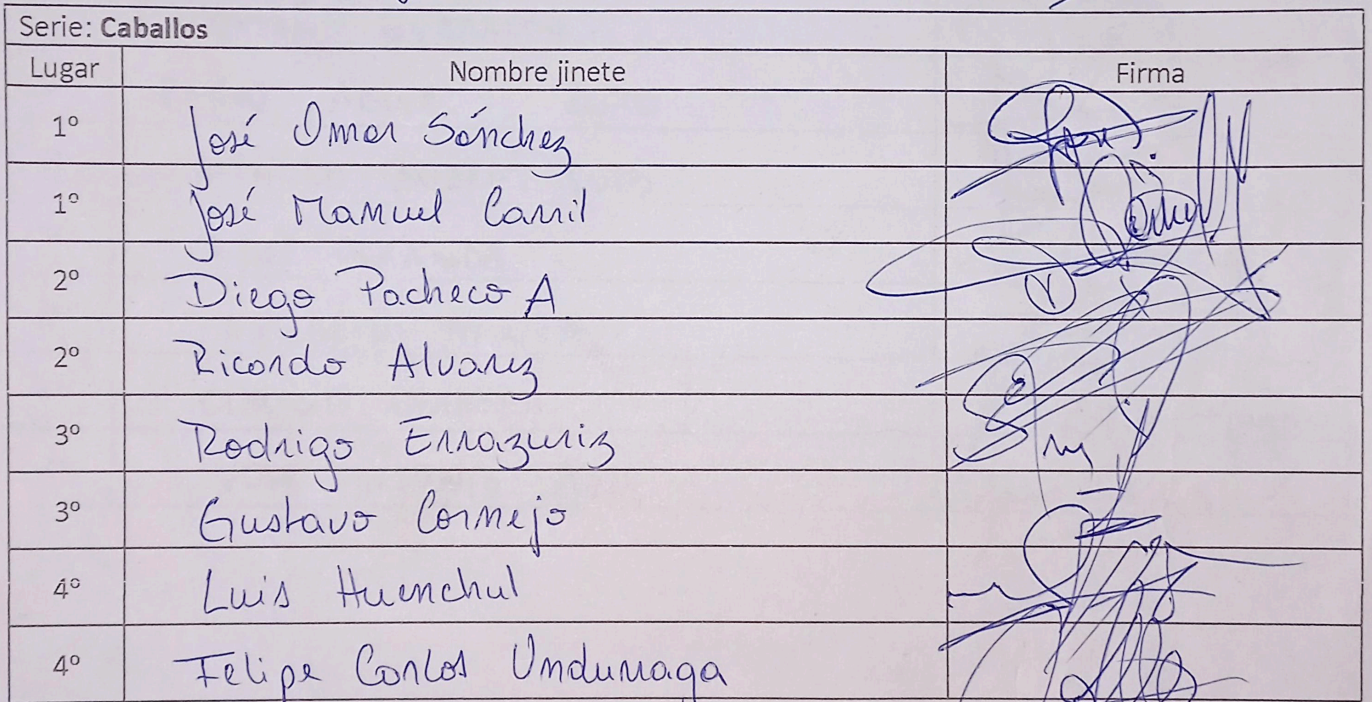 Serie: Caballos
Lugar Nombre jinete Firma
1º José Omar Sánchez
1º José Manuel Carril
2º Diego Pacheco A
2º Ricardo Alvarez
3º Rodrigo Errazuriz
3º Gustavo Cornejo
4º Luis Huenchul
4º Felipe Carlos Undurraga